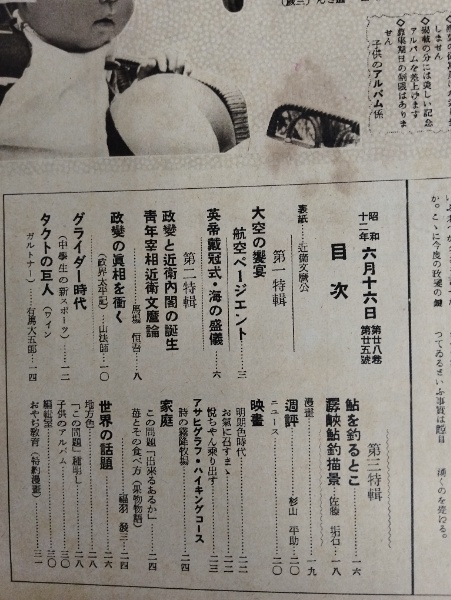 しません
◇掲載の分には美しい記念
アルバムを差上げます
◇募集期日の制限はありま
せん
子供のアルバム係
昭和十二年 六月十六日 第廿八巻 第廿五號
目次
表紙……近衛文麿公
第一特輯
大空の饗宴
航空ページェント……三
英帝戴冠式・海の盛儀……六
第二特輯
政變と近衛内閣の誕生
青年宰相近衛文麿論
馬場恒吾……八
政變の眞相を衝く
(政界太平記)…山法師……一〇
グライダー時代
(中學生の新スポーツ)……一二
タクトの巨人(ワインガルトナー)
……有馬大五郎…一四
第三特輯
鮎を釣るとこ……一六
鮎釣描景…佐藤垢石…一八
漫畫……一九
週評……杉山平助…二〇
ニュース……二〇
映畫
明朗色時代……二二
お氣に召すまゝ……二二
悦ちやん乗り出す……二三
アサヒグラフ・ハイキングコース
詩の霧降牧場……二四
家庭
この問題「出来るあるか」……二四
苺とその食べ方(果物物語)
……福羽發三…二四
世界の話題……二六
地方色……二八
「この問題」種明し……二八
子供のアルバム……三〇
編輯室……三〇
おやぢ教育(特約漫畫)……三一
か。こゝに今度の政變の鍵
つてゐるまいふ事實は題目
湧くのを覺ゆる。